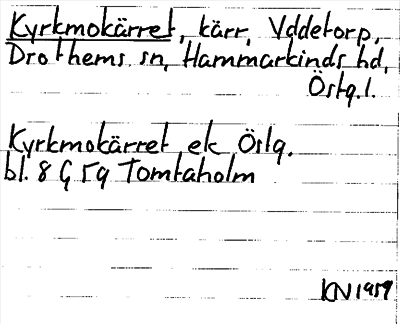 Kyrkmokärret, kärr, Yddetorp,
Drothems sn, Hammarkinds hd,
Östg.l.
Kyrkmokärret ek Östg.
bl. 8 G 5g Tomtaholm
KN 1959